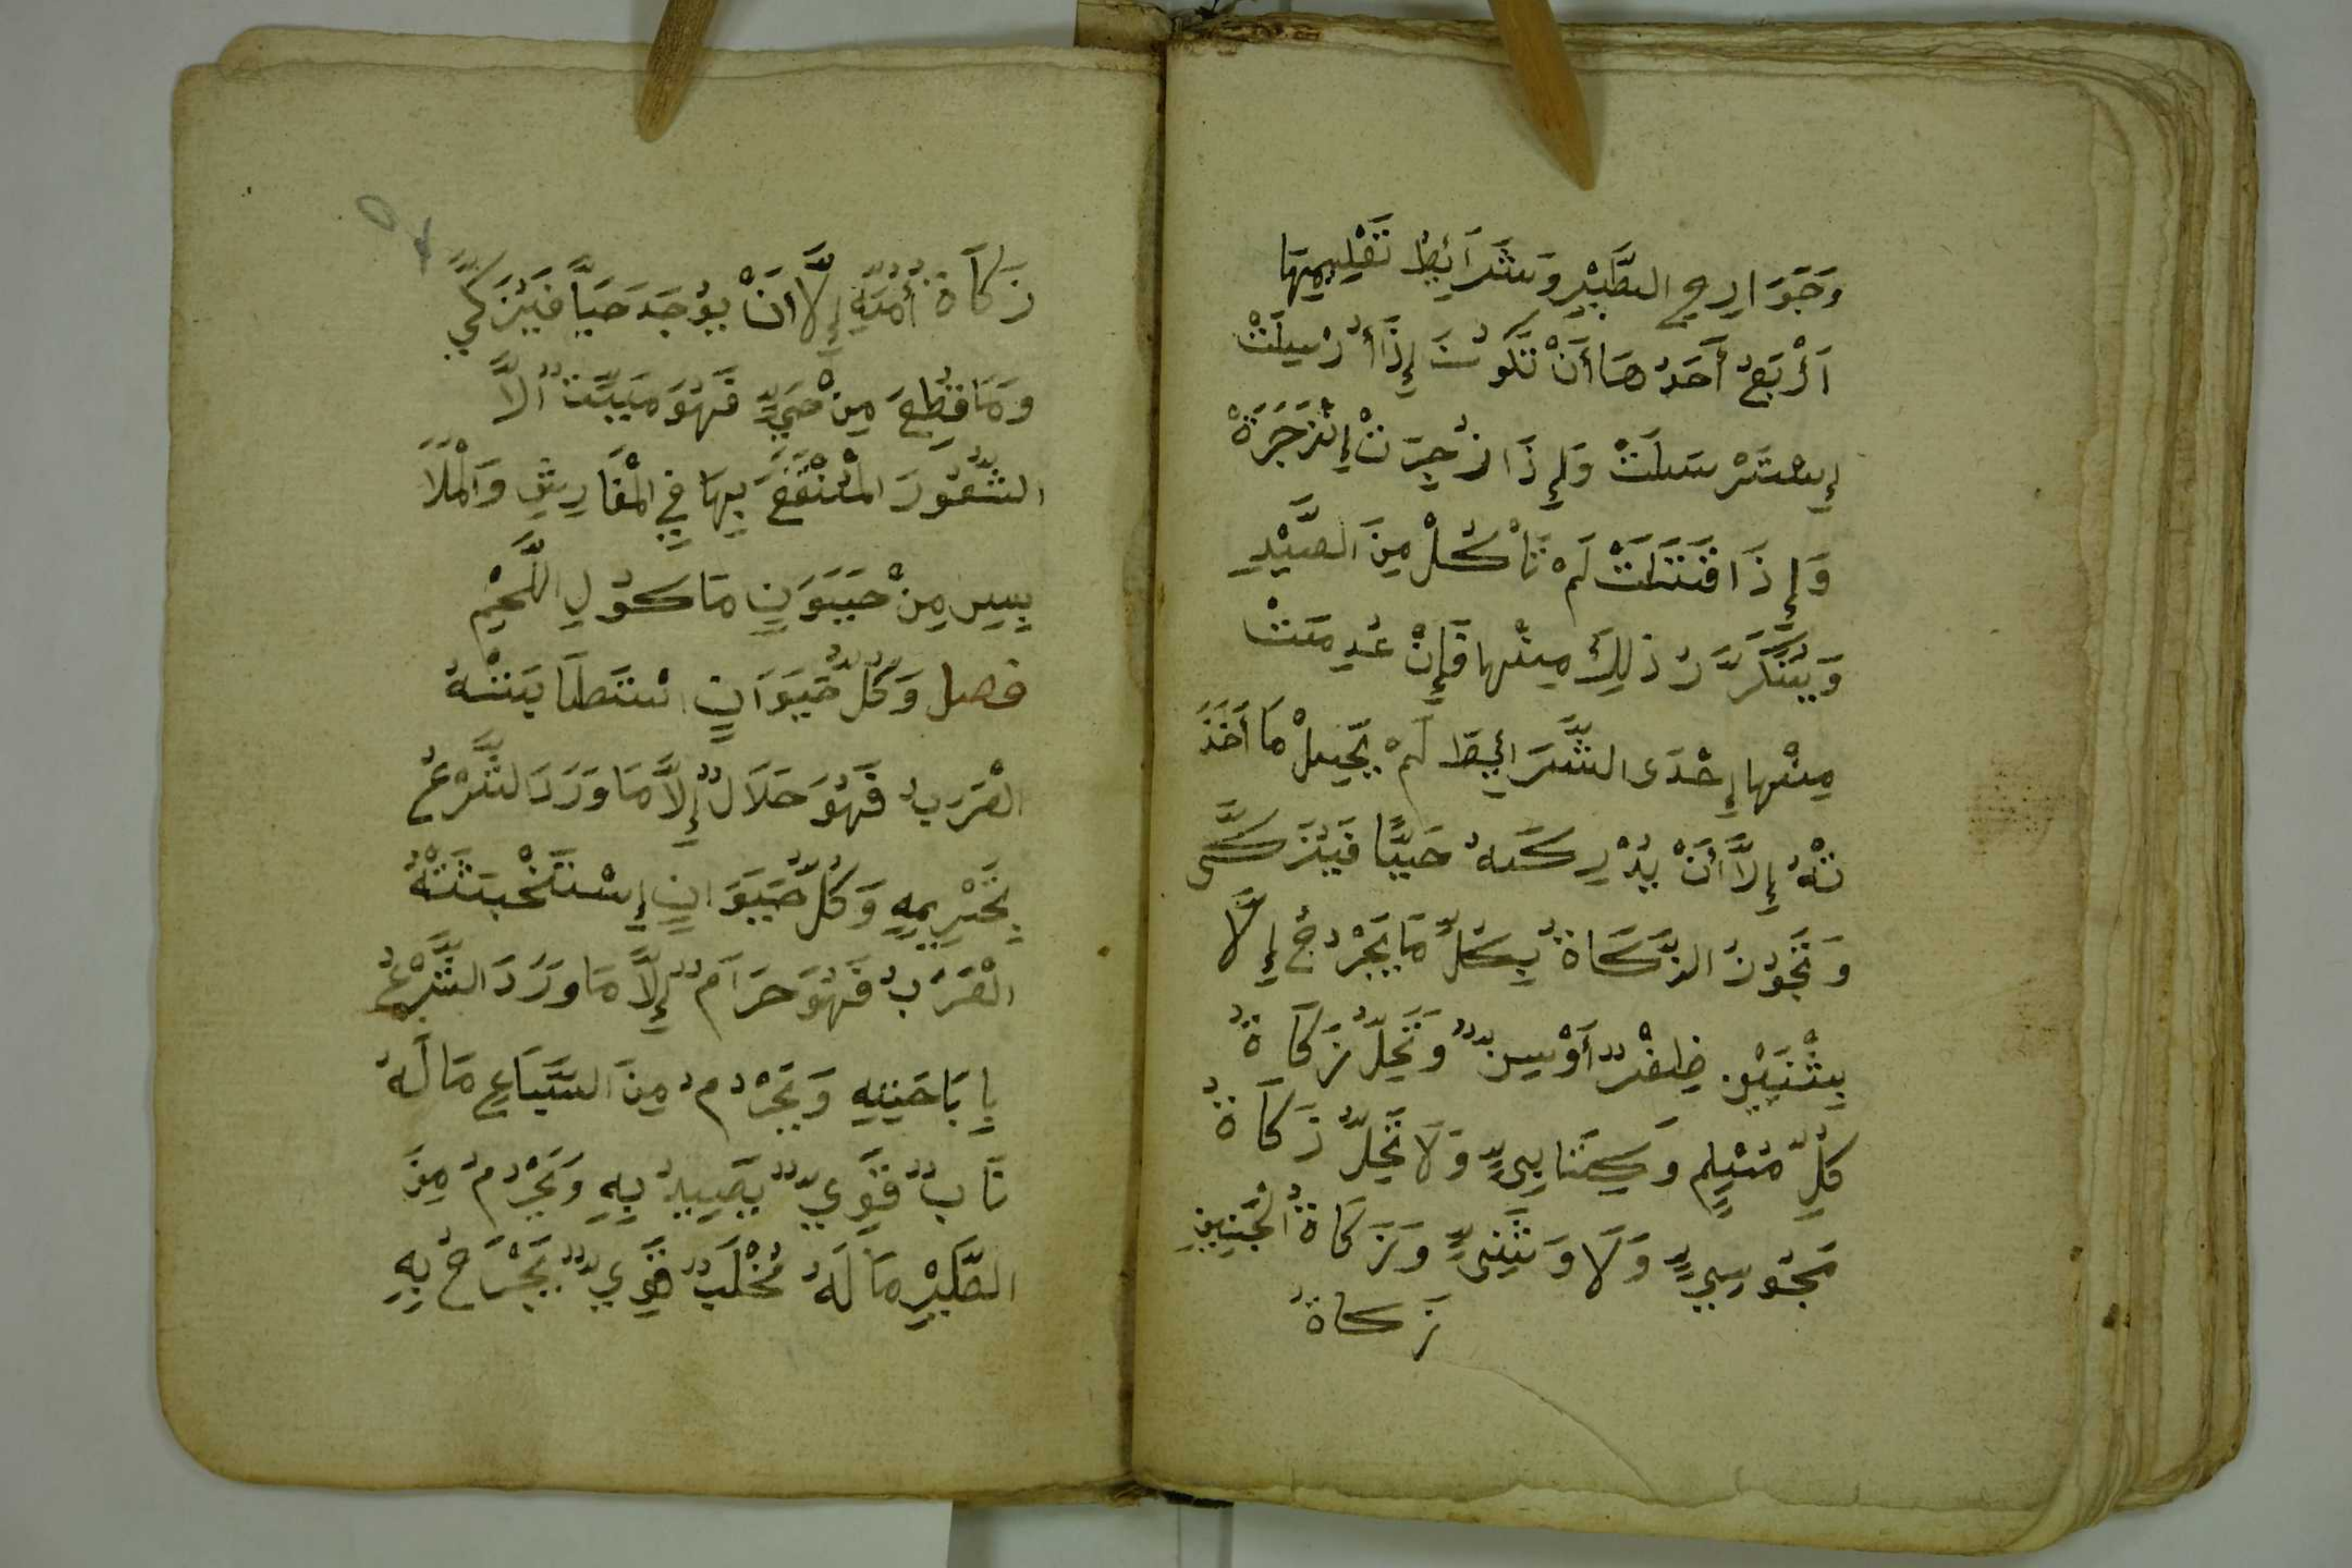 وَجَوَارِحِ الطَّيْرِ وَشَرَائِطُ تَعْلِيمِهَا
اَرْبَعٌ أَحَدُهَا أَنْ تَكُونَ إِذَا أُرْسِلَتْ
إِسْتَرْسَلَتْ وَإِذَا زُجِرَتْ إِنْزَجَرَةْ
وَإِذَا قَتَلَتْ لَمْ تَأْكُلْ مِنَ الصَّيْدِ
وَيَتَكَرَّرُ ذٰلِكَ مِنْها فَإِنْ عُدِمَتْ
مِنْها إِحْدَى الشَّرَائِطِ لَمْ يَحِلْ مَا أَخَذَ
تْهُ إِلَّا أَنْ يُدْرِكَهُ حَيًّا فَيُزَكَّى
وَتَجُوزُ الزَّكَاةُ بِكُلِّ مَا يَجْرُحُ إِلَّا
بِشَيْئٍ ظِفْرٌ أَوْ سِنٌّ وَتَحِلُّ زَكَاةُ
كُلِّ مُسْلِمٍ وَكِتَابِيٍّ وَلَا تَحِلُّ زَكَاةُ
مَجُوسِيٍّ وَلَا وَثَنِيٍّ وَزَكَاةُ الْجَنِينِ
زَكاةُ
زَكَاةُ أُمِّهِ إِلَّا انْ يُوجَدَ حَيًّا فَيُزَكَّي
وَمَا قُطِعَ مِنْ حَيٍّ فَهُوَ مَيِّتٌ الَّا
الشُّعُورَ الْمُنْتَفَعَ بِهَا فِي الْمَفَارِشِ وَالْمَلَا
بِسِ مِنْ حَيَوَنٍ مَاكُولِ اللَّحْمِ
فصل وَكُلُّ حَيَوَانٍ اسْتَطَابَتْهُ
الْعَرَبُ فَهُوَ حَلَالٌ إِلَّا مَا وَرَدَ الشَّرْعُ
بِتَحْرِيمِهِ وَكُلُّ حَيَوَانٍ إِسْتَخْبَثَتْهُ
الْعَرَبُ فَهُوَ حَرَامٌ إِلَّا مَا وَرَدَ الشَّرْعُ
بِإِبَاحَتِهِ وَيَحْرُمُ مِنَ السِّبَاعِ مَالَهُ
نَابٌ قَوِيٌّ يَصِيدُ بِهِ وَيَحْرُمُ مِنَ
الطَّيْرِ مَالَهُ مُخْلَبٌ قَوِيٌّ يَجْرَحُ بِهِ